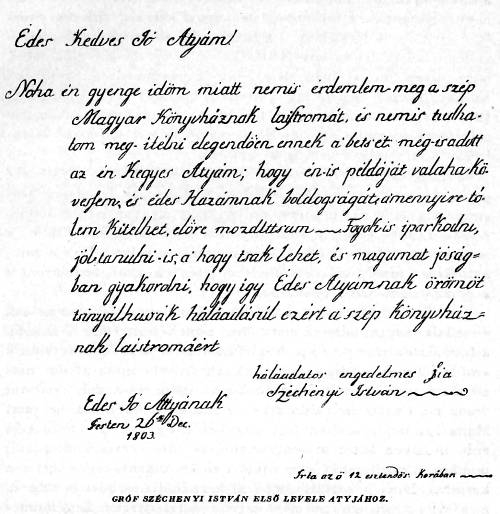 Édes Kedves Jó Atyám!
Noha én gyenge idöm miatt nemis érdemlem-meg a szép
Magyar Könyvháznak lajstromát, és nemis tudha-
tom meg-itélni elegendöen ennek a' betsét: még-is adott
az én Kegyes Atyám; hogy én-is példáját valaha kö-
vessem, és édes Hazámnak boldogságát, a'mennyire tö-
lem kitelhet, elöre mozdittsam — Fogok is iparkodni,
jól tanulni-is, a' hogy tsak lehet, és magamat jóság-
ban gyakorolni, hogy igy Édes Atyámnak örömöt
tsinyálhassák háláadásúl ezért a' szép könyvház-
nak laistromáért
háláadator engedelmes fia
Széchényi István
Édes Jó Attyának
Pesten 26ta Dec.
1803.
Irta az ö 12 esztendös Korában
GRÓF SZÉCHENYI ISTVÁN ELSŐ LEVELE ATYJÁHOZ.